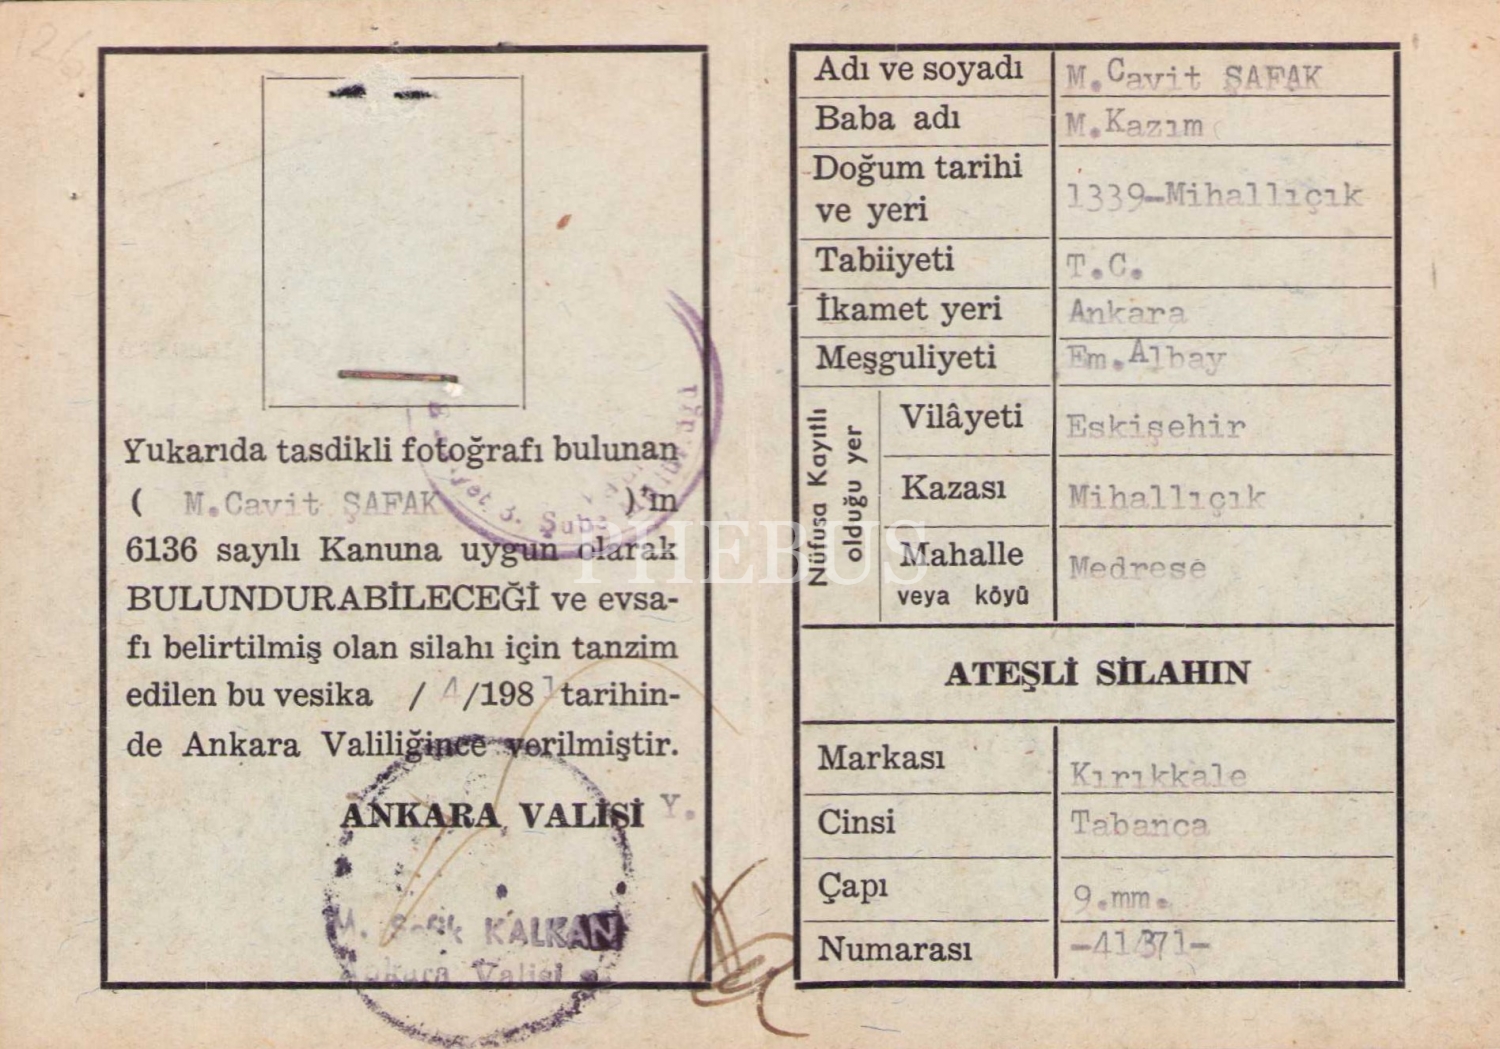 Yukarıda tasdikli fotoğrafı bulunan
( M.Cavit ŞAFAK )'ın
6136 sayılı Kanuna uygun olarak
BULUNDURABİLECEĞİ ve evsa-
fı belirtilmiş olan silahı için tanzim
edilen bu vesika / 4/1981 tarihin-
de Ankara Valiliğince verilmiştir.
ANKARA VALİSİ Y.
M. KALKAN
Ankara Valisi
Adı ve soyadı M.Cavit ŞAFAK
Baba adı M.Kazım
Doğum tarihi
ve yeri 1339-Mihallıçık
Tabiiyeti T.C.
İkamet yeri Ankara
Meşguliyeti Em.Albay
Nüfusa Kayıtlı
olduğu yer
Vilâyeti Eskişehir
Kazası Mihallıçık
Mahalle
veya köyü Medrese
ATEŞLİ SİLAHIN
Markası Kırıkkale
Cinsi Tabanca
Çapı 9.mm.
Numarası
PHEBUS